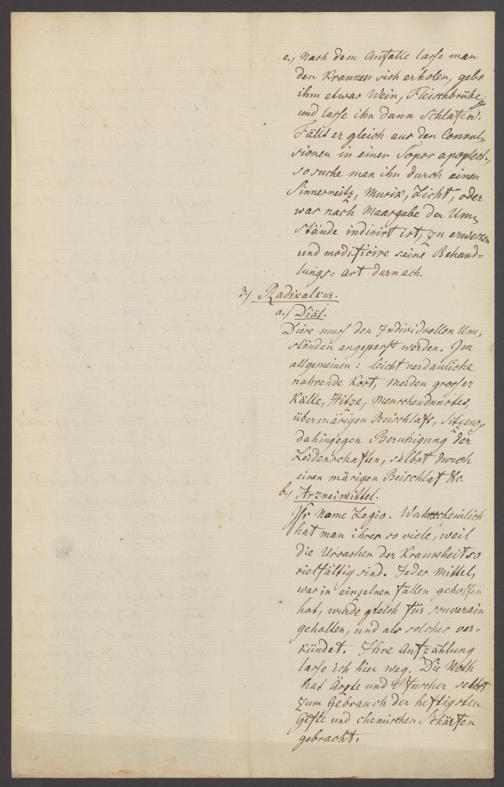 c.) Nach dem Anfalle lasse man
den Kranken sich erholen, gebe
ihm etwas Wein, Fleischbrühe
und lasse ihn dann schlafen.
Fällt er gleich aus den Convul-
sionen in einen Sopor apoplect.
so suche man ihn durch einen
Sinnesreitz, Musik, Licht, oder
was nach Maasgabe der Um-
stände indicirt ist, zu erwecken
und modificire seine Behand-
lungs-art darnach.
3) Radikalkur.
a.) Diät.
Diese muss den Individuellen Um-
ständen angepasst werden. Im
allgemeinen: leicht verdauliche
nahrende Kost, meiden grosser
Kälte, Hitze, Menschendunstes,
übermäsigen Beischlafs, Sitzens,
dahingegen Beruhigung der
Leidenschaften, selbst durch
einen mäsigen Beischlaf &c.
b.) Arzneimittel.
Ihr Name Legio. Wahrscheinlich
hat man ihrer so viele, weil
die Ursachen der Krankheit so
vielfältig sind. Jedes Mittel,
was in einzelnen fällen geholfen
hat, wurde gleich für souverain
gehalten, und als solches ver-
kündet. Ihre Aufzählung
lasse ich hier weg. Die Noth
hat Ärzte und Pfuscher selbst
zum Gebrauch der heftigsten
Gifte und chemischen Schärfen
gebracht.